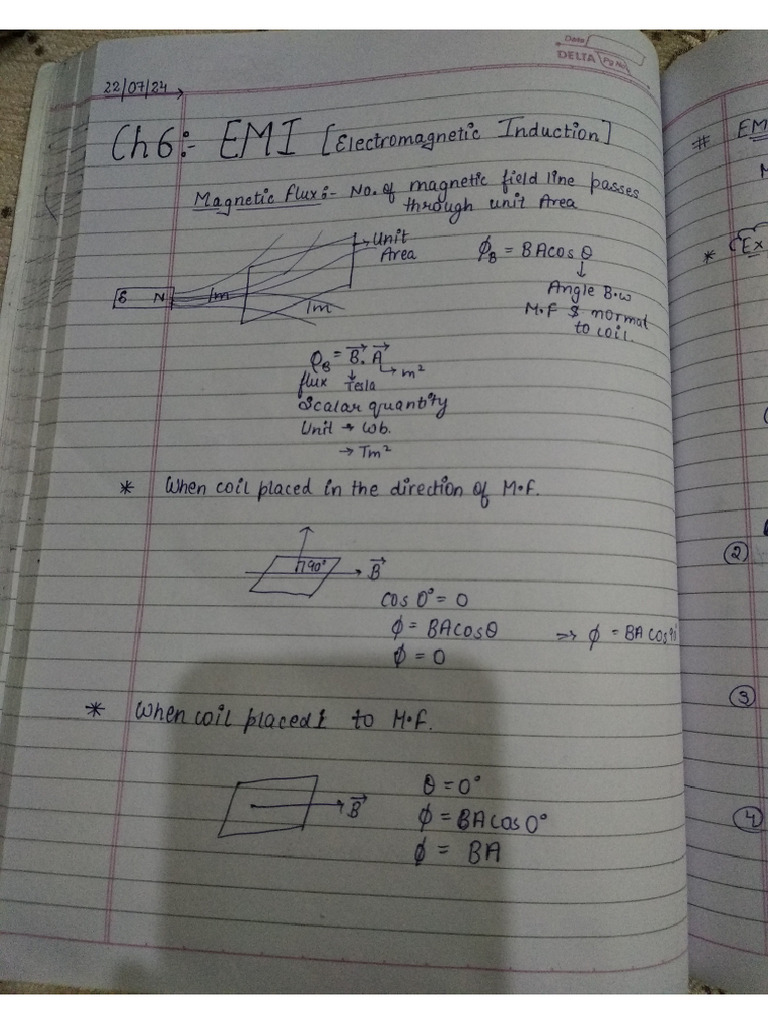 Date
DELTA Pg No.
22/07/24
Ch 6:- EMI [Electromagnetic Induction]
Magnetic flux:- No. of magnetic field line passes
through unit Area
Unit
Area
S N 1m
1m
ϕB = BA cos θ
↓
Angle B.w
M.F & normal
to coil.
ϕB = B⃗. A⃗ → m²
flux Tesla
Scalar quantity
Unit → Wb.
→ Tm²
* When coil placed in the direction of M.F.
90° B⃗
cos 0° = 0
ϕ = BA cos θ => ϕ = BA cos 90°
ϕ = 0
* When coil placed ⊥ to M.F.
B⃗
θ = 0°
ϕ = BA cos 0°
ϕ = BA
# EM
M
* Ex
2
3
4